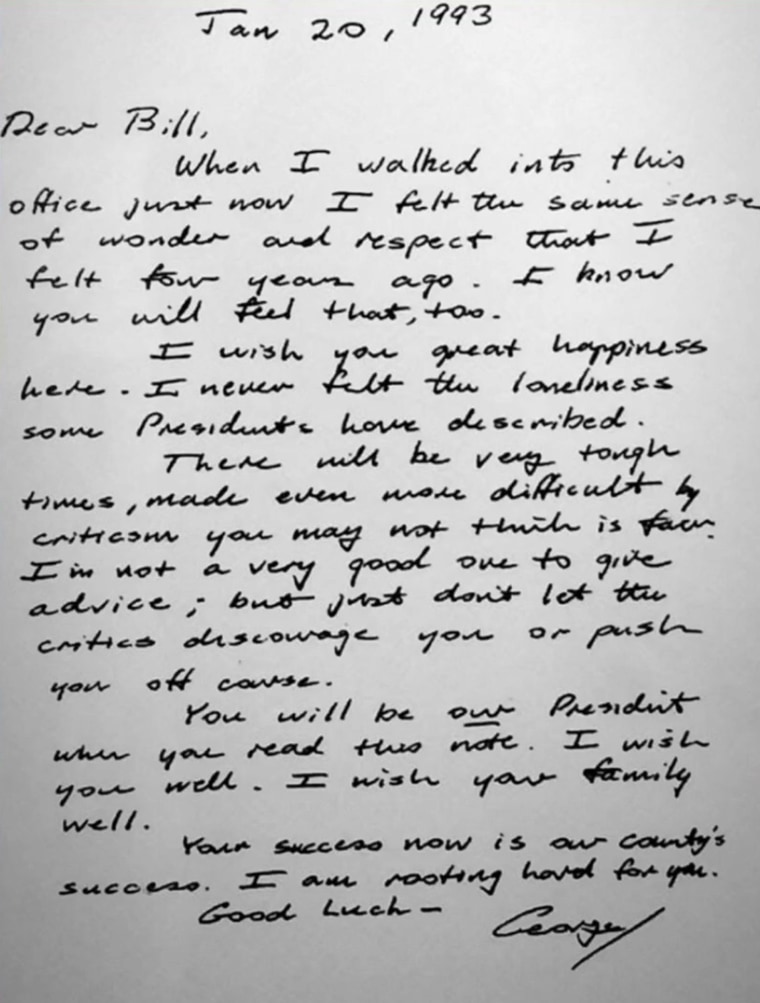 Jan 20, 1993
Dear Bill,
When I walked into this
office just now I felt the same sense
of wonder and respect that I
felt four years ago. I know
you will feel that, too.
I wish you great happiness
here. I never felt the loneliness
some Presidents have described.
There will be very tough
times, made even more difficult by
criticism you may not think is fair.
I'm not a very good one to give
advice; but just don't let the
critics discourage you or push
you off course.
You will be our President
when you read this note. I wish
you well. I wish your family
well.
Your success now is our country's
success. I am rooting hard for you.
Good Luck -
George